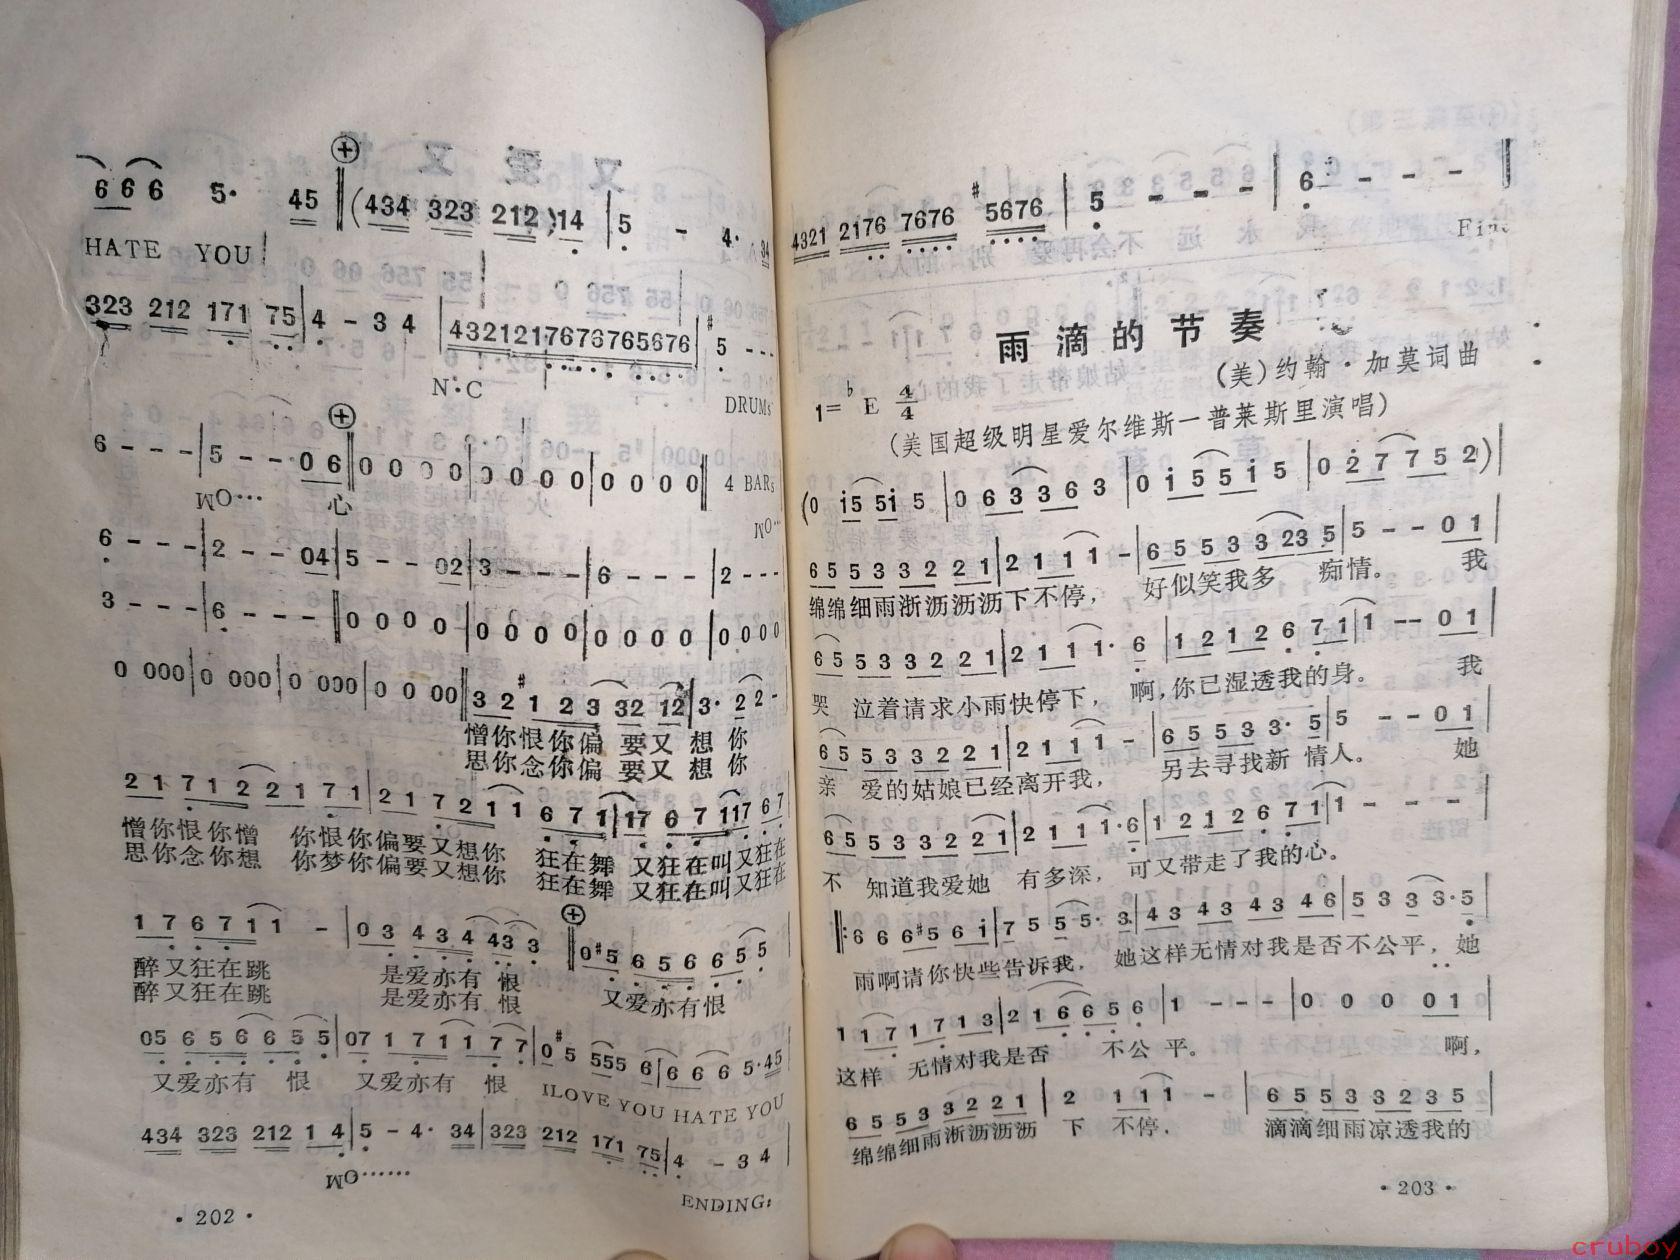 6 6 6 5· 45 (434 323 212) 14 5 - 4· 34
HATE YOU
323 212 171 75 4 - 3 4 4321217676765676 #5 - - -
N·C DRUMs
6 - - - 5 - - 0 6 0 0 0 0 0 0 0 0 0 0 0 0 4 BARs
MO… 心 MO…
6 - - - 2 - - 04 5 - - 02 3 - - - 6 - - - 2 - - -
3 - - - 6 - - - 0 0 0 0 0 0 0 0 0 0 0 0 0 0 0 0
0 000 0 000 0 000 0 0 00 3 2 #1 2 3 32 12 3· 2 2 -
憎你恨你偏 要又 想 你
思你念你偏 要又 想 你
2 1 7 1 2 2 1 7 1 2 1 7 2 1 1 6 7 1 17 6 7 1 17 6 7
憎你恨你憎 你恨你偏要又想你 狂在舞 又狂在叫又狂在
思你念你想 你梦你偏要又想你 狂在舞 又狂在叫又狂在
1 7 6 7 1 1 - 0 3 4 3 4 43 3 0 #5 6 5 6 6 5 5
醉又狂在跳 是爱亦有 恨 又爱亦有恨
醉又狂在跳 是爱亦有 恨
05 6 5 6 6 5 5 07 1 7 1 1 7 7 0 #5 555 6 6 6 6 5·45
又爱亦有 恨 又爱亦有 恨 ILOVE YOU HATE YOU
434 323 212 1 4 5 - 4· 34 323 212 171 75 4 - 3 4
MO…… ENDING:
·202·
4321 2176 7676 #5676 5 - - - 6 - - -
Fine
雨滴的节奏
(美)约翰·加莫词曲
1=♭E 4/4
(美国超级明星爱尔维斯—普莱斯里演唱)
(0 i5 5i 5 0 6 3 3 6 3 0 i 5 5 i 5 0 2 7 7 5 2)
6 5 5 3 3 2 2 1 2 1 1 1 - 6 5 5 3 3 23 5 5 - - 0 1
绵绵细雨淅沥沥沥下不停, 好似笑我多 痴情。 我
6 5 5 3 3 2 2 1 2 1 1 1· 6 1 2 1 2 6 7 1 1 - - 0 1
哭 泣着请求小雨快停下, 啊,你已湿透我的身。 我
6 5 5 3 3 2 2 1 2 1 1 1 - 6 5 5 3 3· 5 5 - - 0 1
亲 爱的姑娘已经离开我, 另去寻找新 情人。 她
6 5 5 3 3 2 2 1 2 1 1 1· 6 1 2 1 2 6 7 1 1 - -
不 知道我爱她 有多深, 可又带走了我的心。
‖: 6 6 6 #5 6 i 7 5 5 5· 3 4 3 4 3 4 3 4 6 5 3 3 3· 5
雨啊请你快些告诉我, 她这样无情对我是否不公平, 她
1 1 7 1 7 1 3 2 1 6 6 5 6 1 - - - 0 0 0 0 1
这样 无情对我是否 不公 平。 啊,
6 5 5 3 3 2 2 1 2 1 1 1 - 6 5 5 3 3 2 3 5
绵绵细雨淅沥沥沥 下 不停, 滴滴细雨凉透我的
·203·
cruboy